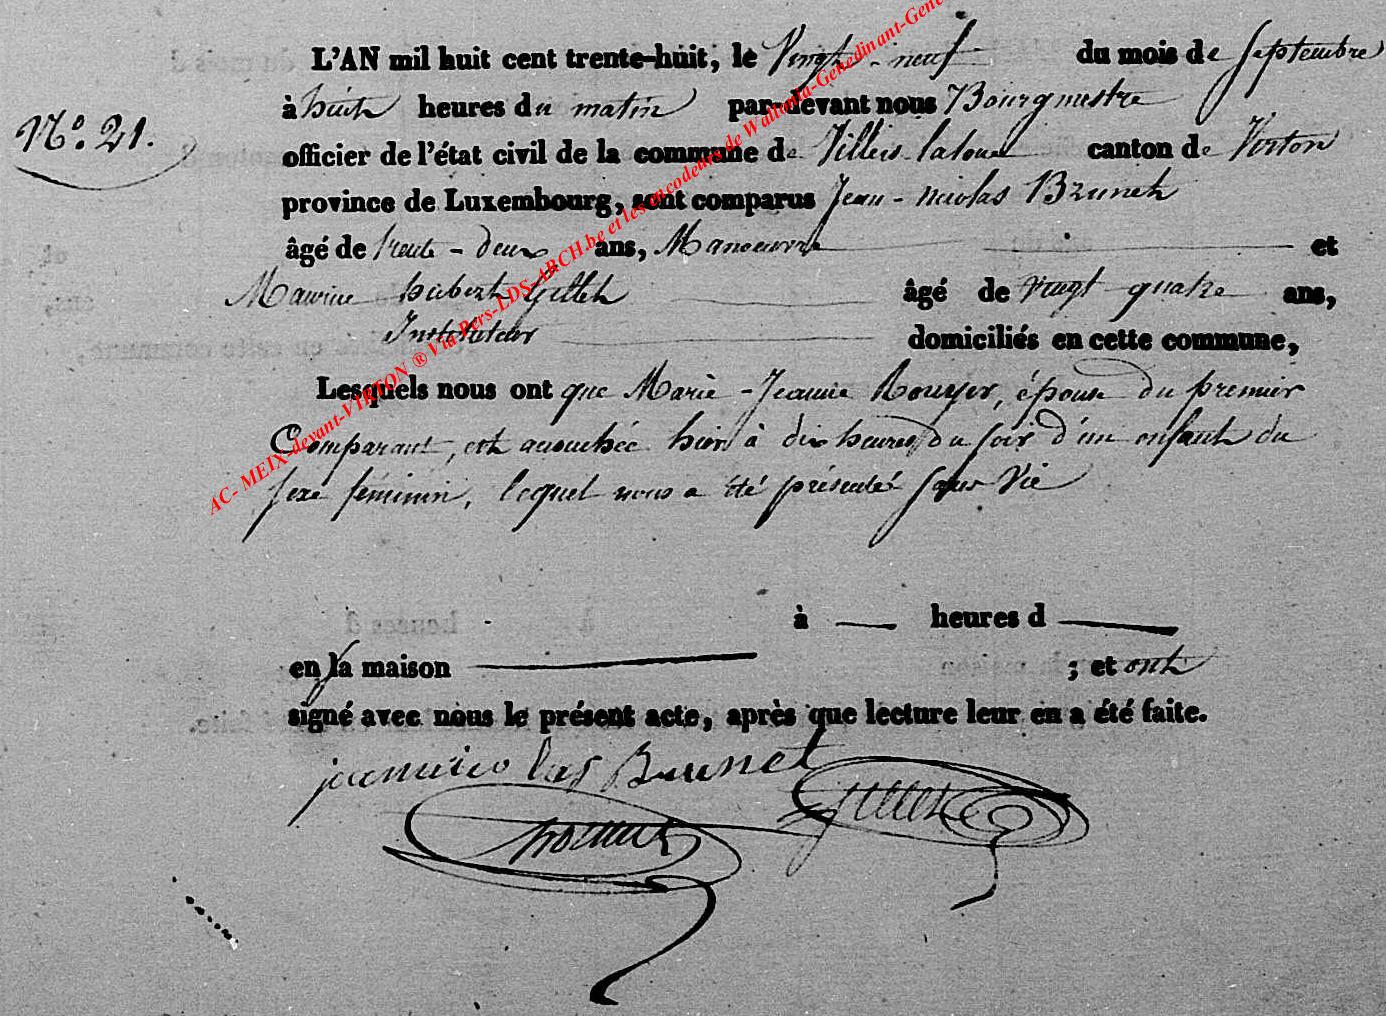 L'AN mil huit cent trente-huit, le Vingt-neuf du mois de Septembre
à huit heures du matin par-devant nous Bourgmestre
N.º 21.
officier de l'état civil de la commune de Villers-laloue canton de Virton
province de Luxembourg, sont comparus Jean-nicolas Brunet
âgé de trente-deux ans, Manoeuvre et
hubert Gillet âgé de vingt quatre ans,
Instituteur domiciliés en cette commune,
Lesquels nous ont que Marie-Jeanne Rouyer, épouse du premier
Comparant, est accouchée hier à dix heures du soir d'un enfant du
sexe féminin, lequel nous a été présenté sans Vie
à heures d
en la maison ; et ont
signé avec nous le présent acte, après que lecture leur en a été faite.
jeannicolas Brunet
Gillet
AC- MEIX-devant-VIRTON ® Via Pers-LDS-ARCH.be et les encodeurs de Wallonia-Genedinant-Gene